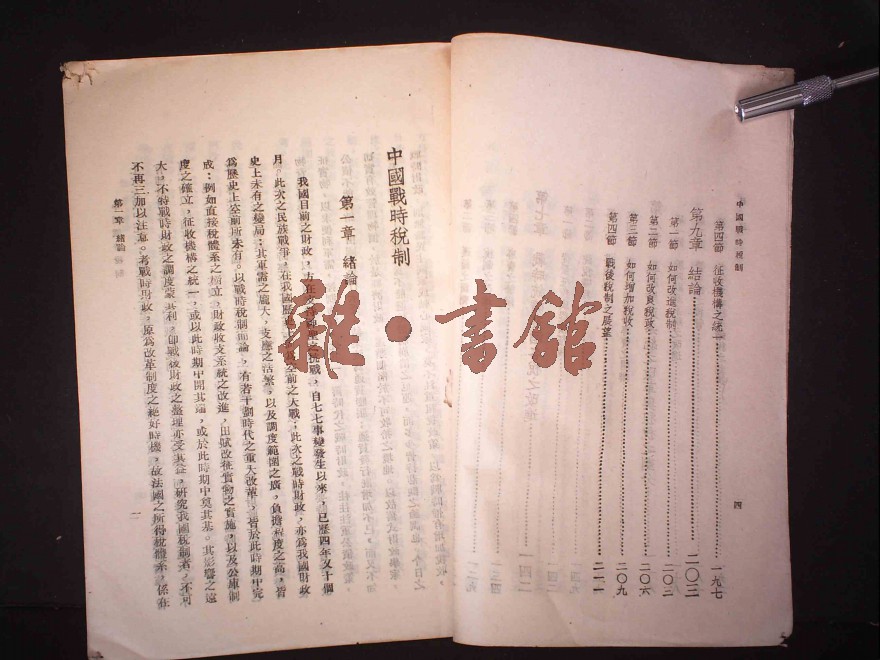 中國戰時稅制
四
第四節 征收機構之統一 一九七
第九章 結論 二〇三
第一節 如何改進稅制 二〇三
第二節 如何改良稅政 二〇六
第三節 如何增加稅收 二〇九
第四節 戰後稅制之展望 二一一
中國戰時稅制
第一章 緒論
我國目前之財政,自七七事變發生以來,已歷四年又十個
月。此次之民族戰爭,在我國歷史空前之大戰;此次之戰時財政,亦爲我國財政
史上未有之變局;其軍需之龐大,支應之浩繁,以及調度範圍之廣,負擔程度之高,皆
爲歷史上空前所未有。以戰時稅制而論,有若干劃時代之重大改革,皆於此時期中完
成:例如直接稅體系之樹立,財政收支系統之改進,田賦改征實物之實施,以及公庫制
度之確立,征收機構之統一,或以此時期中開其端,或於此時期中奠其基。其影響之遠
大,不特戰時財政之調度蒙其利,卽戰後財政之整理亦受其益,研究我國稅制者,不可
不再三加以注意。考戰時財政,原爲改革制度之絕好時機,故法國之所得稅體系,係在
第一章 緒論
一
雜·書館